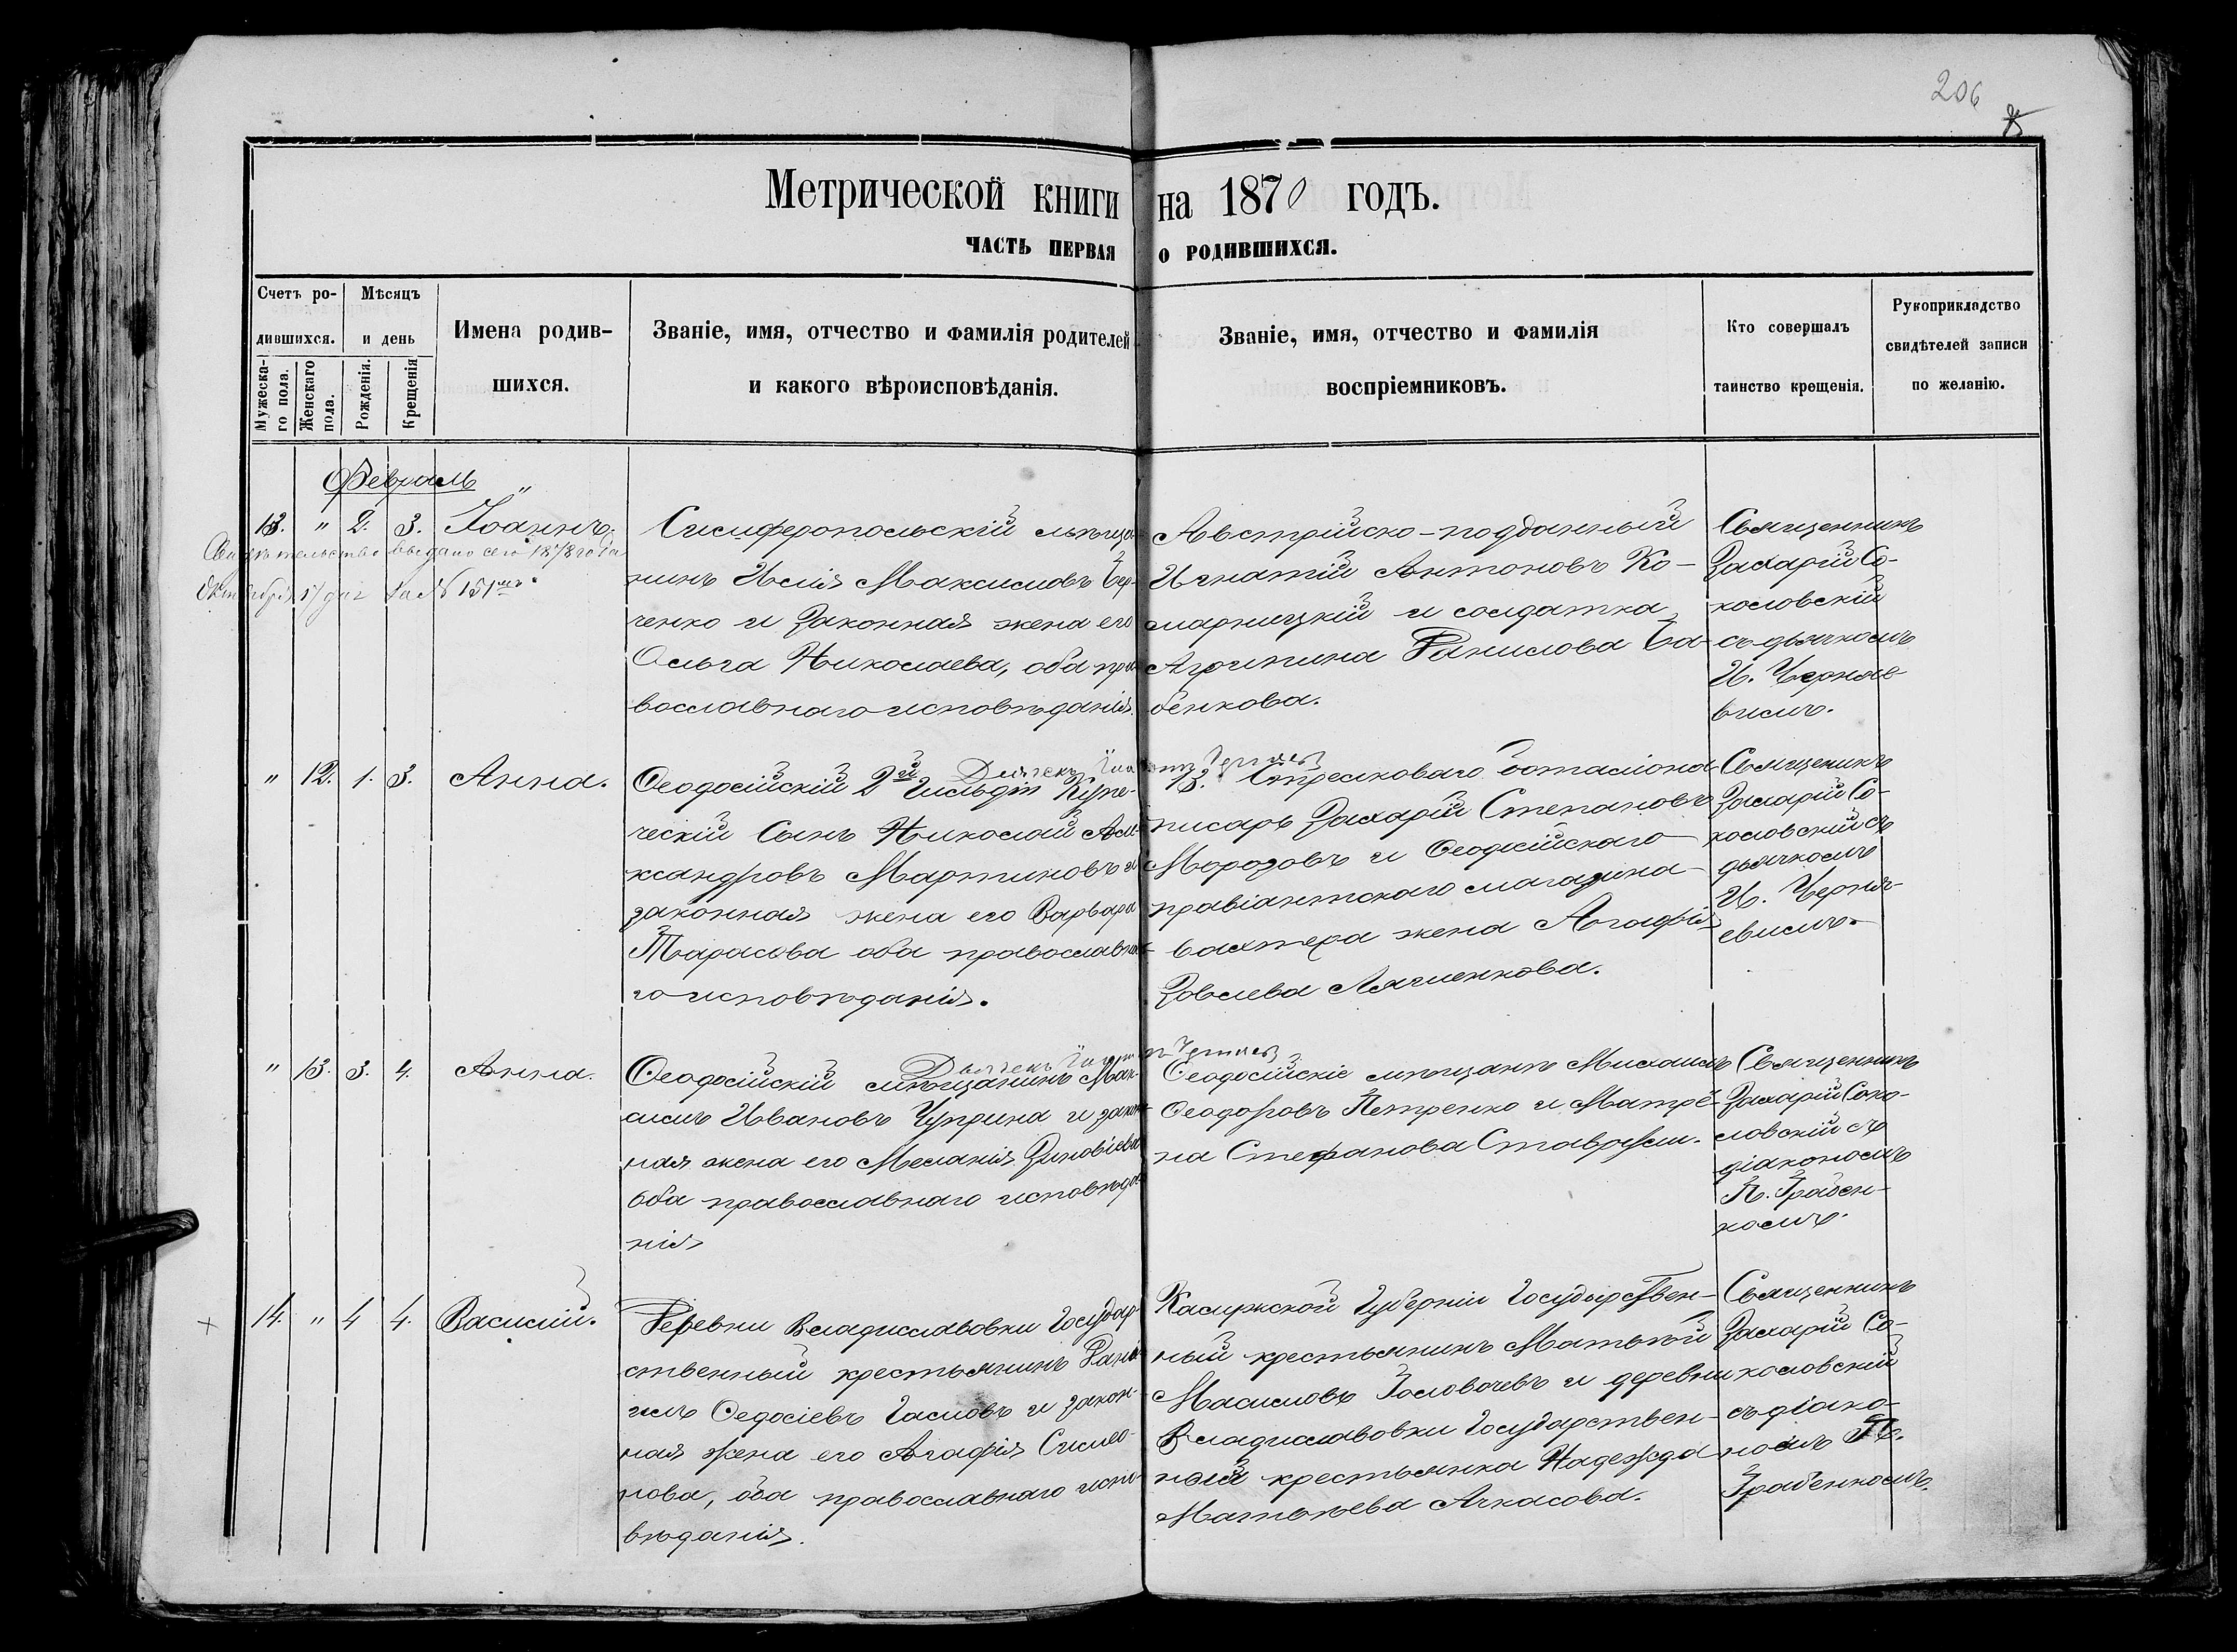 206
Метрической книги на 1870 годъ.
ЧАСТЬ ПЕРВАЯ О РОДИВШИХСЯ.
Счетъ ро-
дившихся.
Мужеска-
го пола.
Женскаго
пола.
Мѣсяцъ
и день
Рожденія.
Крещенія
Имена родив-
шихся.
Званіе, имя, отчество и фамилія родителей
и какого вѣроисповѣданія.
Званіе, имя, отчество и фамилія
воспріемниковъ.
Кто совершалъ
таинство крещенія.
Рукоприкладство
свидѣтелей записи
по желанію.
Февраль
13. " 2. 3. Іоаннъ.
Свидѣтельство выдано сего 1878 года
Октября 17 дня за № 151
Симферопольскій мѣща-
нинъ Илія Максимовъ
ченко и законная жена его
Ольга Николаева, оба пра-
вославнаго исповѣданія.
Австрійско-подданный
Игнатій Антоновъ Ко-
марницкій и солдатка
Агрипина Данилова Ба-
бенкова.
Священникъ
Захарій Со-
коловскій
съ дьячкомъ
И. Черняе-
вымъ.
" 12. 1. 3. Анна.
Ѳеодосійскій 2й Гильдіи Купе-
ческій Сынъ Николай Але-
ксандровъ Мартиновъ и
законная жена его Варвара
Тарасова оба православна-
го исповѣданія.
Дьячекъ
13. Стрелковаго баталіона
писарь Захарій Степановъ
Морозовъ и Ѳеодосійскаго
правіантскаго магазина
вахтера жена Агафія
Зовлева Лягиенкова.
Священикъ
Захарій Со-
коловскій съ
дьячкомъ
И. Черня-
евымъ.
" 13. 3. 4. Анна.
Дьячекъ
Ѳеодосійскій мѣщанинъ Мак-
симъ Ивановъ Чуприна и закон-
ная жена его Меланія Зиновіева
оба православнаго исповѣда-
нія
Ѳеодосійскіе мѣщане Михаилъ
Ѳеодоровъ Петренко и Матре-
на Стефанова
Священникъ
Захарій Соко-
ловскій съ
діакономъ
П. Грабен-
комъ.
14. " 4 4. Василій.
Деревни Владиславовки Государ-
ственный крестьянинъ Дані-
илъ Федосіевъ Гасмовъ и закон-
ная жена его Агафія Симео-
нова, оба православнаго испо-
вѣданія.
Калужской Губерніи Государствен-
ный крестьянинъ Матвѣй
Масимовъ Головочевъ и деревни
Владиславовки Государствен-
ная крестьянка Надежда
Матвѣева Ачкасова.
Священникъ
Захарій Со-
коловскій
съ діако-
номъ П.
Грабенкомъ.